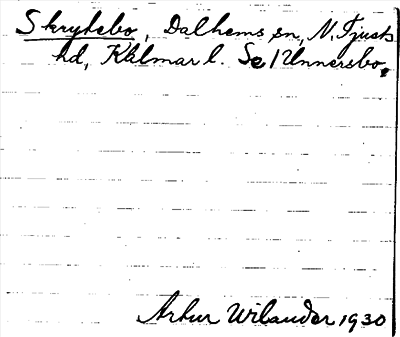 Skrykebo, Dalhems sn, N. Tjusts
hd, Kalmar l. Se / Unnersbo.
Arthur Wilander 1930